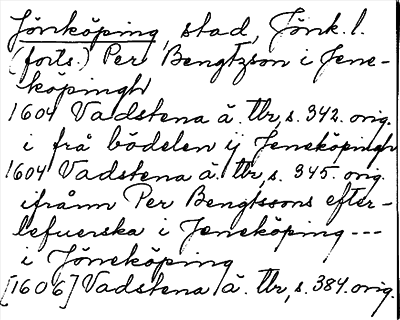 Jönköping, stad, Jönk. l.
(forts.) Per Bengtzson i Jene-
köpingh
1604 Vadstena ä. tbr, s. 342. orig.
i frå bödelen ij Jeneköpingh
1604 Vadstena ä. tbr, s. 345. orig.
ifrånn Per Bengtssons efter-
lefuerska i Jeneköping ---
i Jöneköping
[1606] Vadstena ä. tbr, s. 384. orig.